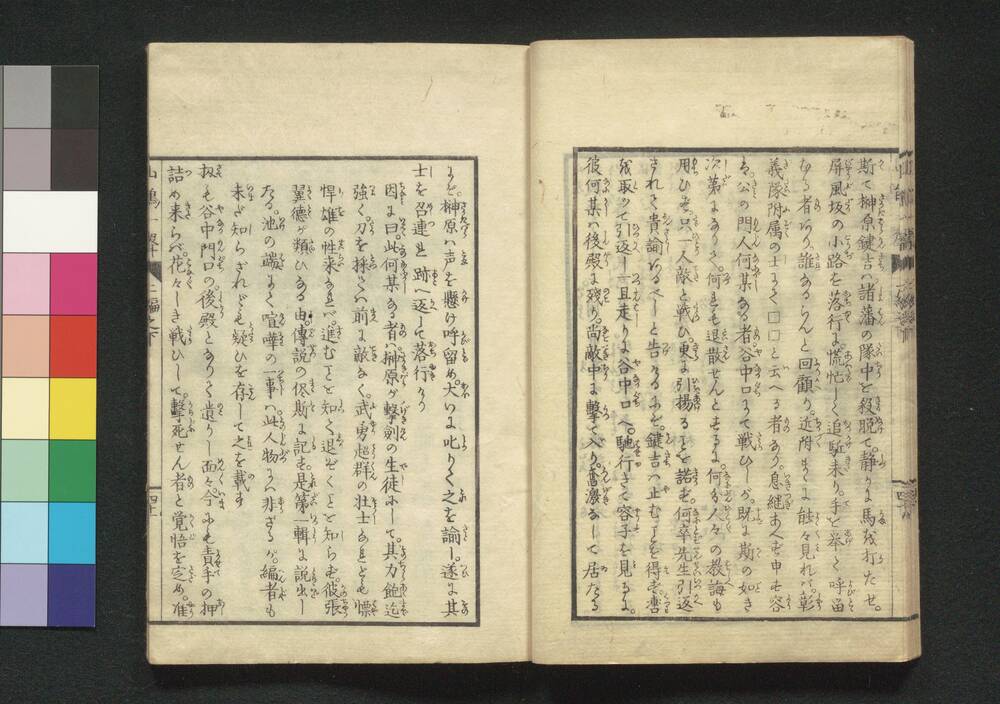 斯て榊原鍵吉ハ諸藩の隊中を殺脱て。静々に馬を打たせ。
屏風坂の小路を落行に。慌忙しく追駈来り。手を挙て呼留
なる者あり。誰なるらんと回顧り。近附まゝに能々見れバ。彰
義隊附属の士にて□□と云へる者なり。息継あへず申す容
る。公の門人何某なる者谷中口にて戦ひしが。既に斯の如き
次第になりしと。何れも退散せんとするに。何分人々の教誨も
用ひず。只一人敵と戦ひ。更に引揚ることを諾ず。何卒先生引返
されて貴諭あるべしと告けるにぞ。鍵吉ハ止むことを得ず。轡
を取つて引返し一旦走りに谷中口へ。馳行きて容子を見るに。
彼何某ハ後殿に残り。尚敵中に撃て入り。奮激なして居たる
にぞ。榊原ハ声を懸け呼留め。大いに叱りて之を諭し。遂に其
士を召連れ跡へ返して落行けり
因に曰。此何某なる者ハ。榊原が撃剣の生徒にして。其力飽迄
強く。刀を採てハ前に敵なく。武勇超群の壮士なれども慓
悍雄の性来なれバ。進むことを知て退ぞくことを知らず。彼張
翼徳が類ひなる由。傳説の侭斯に記す。是第一輯に説出し
たる。池の端にて喧嘩の一事ハ。此人物にハ非ざるか。編者も
未だ知らざれども。疑ひを存して之を載す
扨も谷中門口の。後殿となりて遺りし面々。今にも責手の押
詰め来らバ。花々しき戦ひして。撃死せん者と覚悟を定め。准